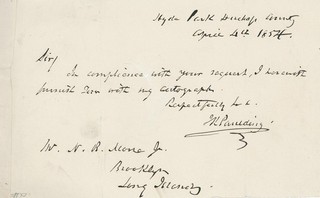 Hyde Park Duchess County
April 4th 1854.
Sir,
In compliance with your request, I herewith
furnish you with my autograph.
Respectfully &c.
JK Paulding
Mr. N. R. Jr.
Brooklyn
Long Island